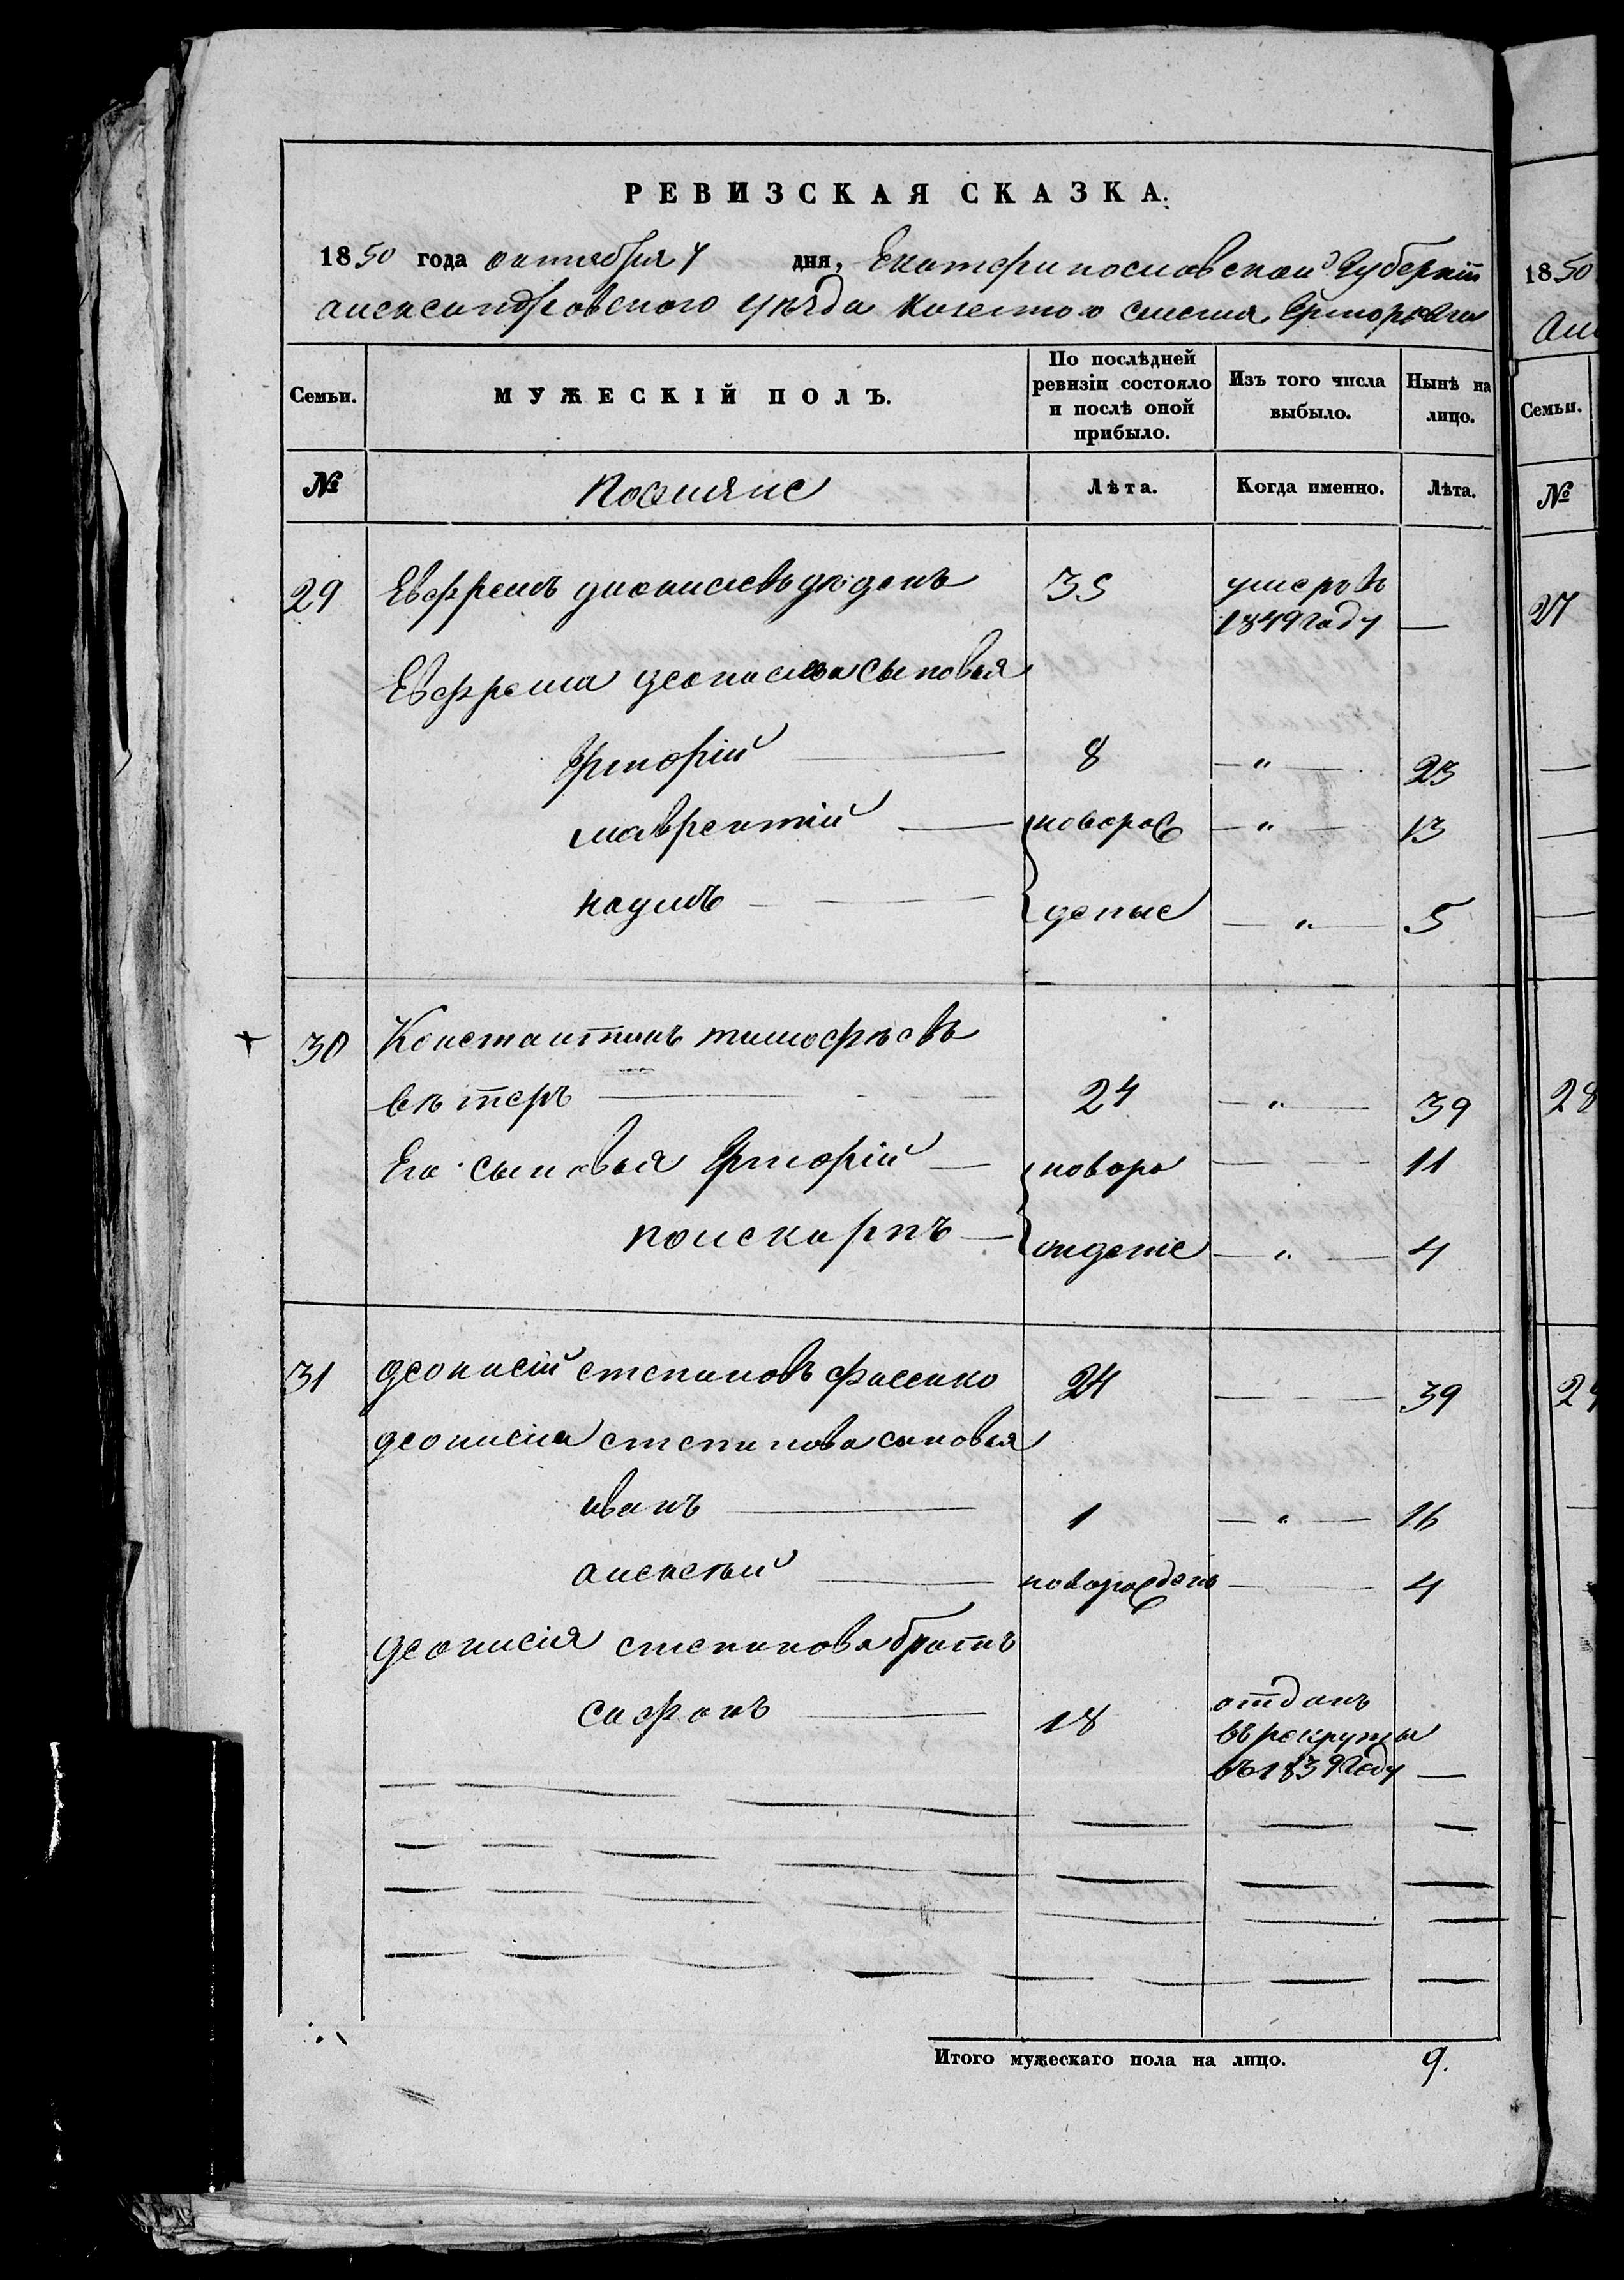 РЕВИЗСКАЯ СКАЗКА.
1850 года октября 7 дня, Екатеринославской Губернии
александровского уезда казенного селения Григорьевки
Семьи. МУЖЕСКІЙ ПОЛЪ. По послѣдней ревизіи состояло и послѣ оной прибыло. Изъ того числа выбыло. Нынѣ на лицо.
№ Поселяне Лѣта. Когда именно. Лѣта.
29 Евфремъ дионисіевъ дюденъ 35 умеръ въ 1849 году —
Евфрема деонисіева сыновья
Григорій — 8 — " — 23
лаврентій — новорож — " — 13
наумъ — деные — " — 5
30 Константинъ тимофѣевъ
вѣтеръ — 24 — " — 39
Его сыновья Григорій — новоро — 11
поликарпъ — жденые — " — 4
31 деонисій степановъ фасенко 24 — 39
деонисия степанова сыновья
иванъ — 1 — " — 16
алексѣй — новорожденъ — 4
деонисія степанова братъ
сафонъ — 18 отданъ
въ рекруты
въ 1839 году —
Итого мужескаго пола на лицо. 9.
1850
Семьи.
№
27
28